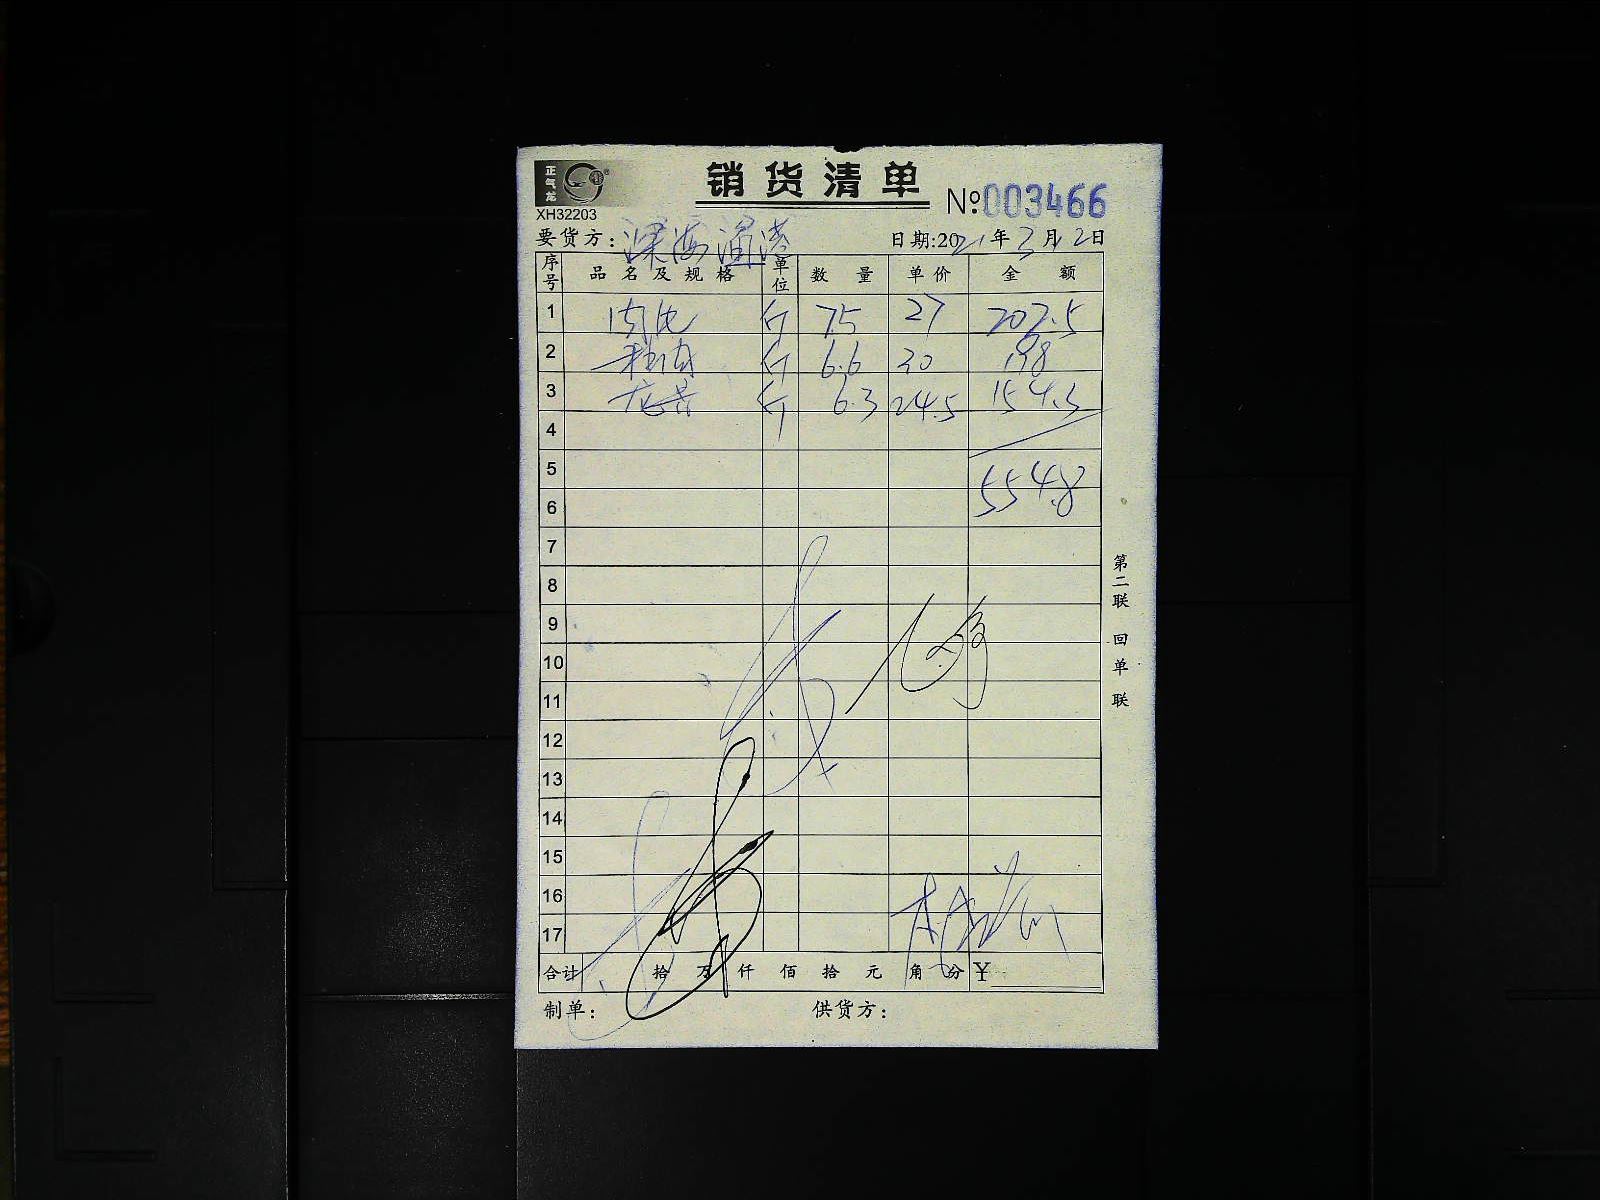 正气龙
销货清单
XH32203
№003466
要货方：深海渔港 日期:2021年3月2日
序号 品名及规格 单位 数量 单价 金额
1 斤 7.5 27 202.5
2 斤 6.6 30 198
3 斤 6.3 24.5 154.3
4
5 554.8
6
7
8
9
10
11
12
13
14
15
16
17
合计 拾 万 仟 佰 拾 元 角 分 ¥
制单： 供货方：
第二联 回单联